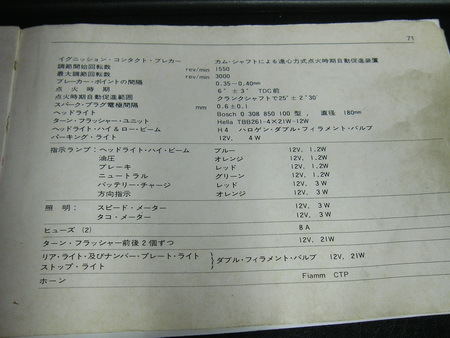 71
イグニッション・コンタクト・ブレカー カム・シャフトによる遠心力式点火時期自動促進装置
調節開始回転数 rev/min 1550
最大調節回転数 rev/min 3000
ブレーカー・ポイントの間隔 0.35-0.40mm
点火時期 6°±3° TDC前
点火時期自動促進範囲 クランクシャフトで25°±2°30′
スパーク・プラグ電極間隔 mm 0.6±0.1
ヘッドライト Bosch 0 308 850 100型, 直径 180mm
ターン・フラッシャー・ユニット Hella TBB261-4×21W-12W
ヘッドライト・ハイ&ロー・ビーム H4 ハロゲン・ダブル・フィラメント・バルブ
パーキング・ライト 12V, 4W
指示ランプ:ヘッドライト・ハイ・ビーム ブルー 12V, 1.2W
油圧 オレンジ 12V, 1.2W
ブレーキ レッド 12V, 1.2W
ニュートラル グリーン 12V, 1.2W
バッテリー・チャージ レッド 12V, 3W
方向指示 オレンジ 12V, 3W
照明: スピード・メーター 12V, 3W
タコ・メーター 12V, 3W
ヒューズ (2) 8A
ターン・フラッシャー前後2個ずつ 12V, 21W
リア・ライト・及びナンバー・プレート・ライト
ストップ・ライト } ダブル・フィラメント・バルブ 12V, 21W
ホーン Fiamm CTP